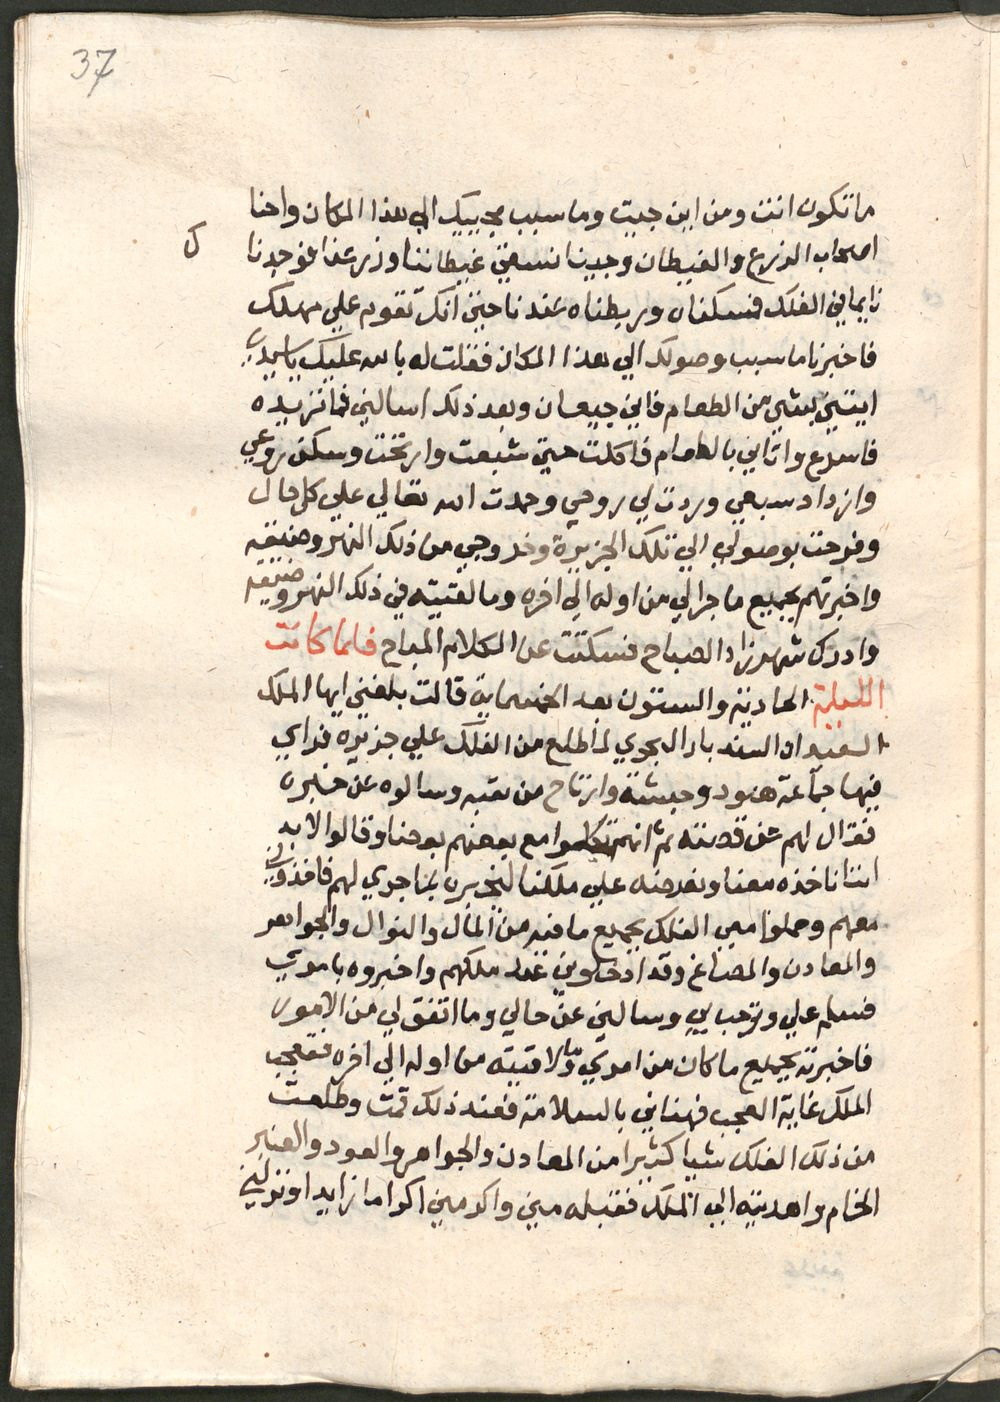 37
ما تكون انت ومن اين جيت وما سبب مجييك الي هذا المكان واحنا
اصحاب الزرع والغيطان وجينا نسقي غيطاننا وزرعنا فوجدنا
ك
نايما في الفلك فمسكناه وربطناه عندنا حتي انك تقوم علي مهلك
فاخبرنا ما سبب وصولك الي هذا المكان فقلت له بالله عليك يا سيدي
ايتني بشي من الطعام فاني جيعان وبعد ذلك اسالني فما تريده
فاسرع واتاني بالطعام فاكلت حتي شبعت وارتحت وسكن روعي
وازداد سبعي وردت لي روحي وحمدت الله تعالي علي كل حال
وفرحت بوصولي الي تلك الجزيرة وخروجي من ذلك النهر وضيقه
واخبرتهم بجميع ما جرا لي من اوله الي اخره وما لقيته في ذلك النهر وضيقه
وادرك شهرزاد الصباح فسكتت عن الكلام المباح فلما كانت
الليلة الحادية والستون بعد الخمسماية قالت بلغني ايها الملك
السعيد ان السندباد البحري لما طلع من الفلك علي جزيره فراي
فيها جماعة هنود وحبشة وارتاح من تعبه وسالوه عن خبره
فقال لهم عن قصته ثم انهم تكلموا مع بعضهم بعضا وقالوا لابد
اننا ناخذه معنا ونعرضه علي ملكنا ليخبره بما جري لهم فاخذوني
معهم وحملوا معي الفلك بجميع ما فيه من المال والنوال والجواهر
والمعادن والمصاغ وقد ادخلوني عند ملكهم واخبروه بامري
فسلم علي وترحب بي وسالني عن حالي وما اتفق لي من الامور
فاخبرته بجميع ما كان من امري وما لاقيته من اوله الي اخره فتعجب
الملك غاية العجب فهناني بالسلامة فعند ذلك قمت وطلعت
من ذلك الفلك شيا كثيرا من المعادن والجواهر والعود والعنبر
الخام واهديته الي الملك فقبله مني واكرمني اكراما زايدا وانزلني